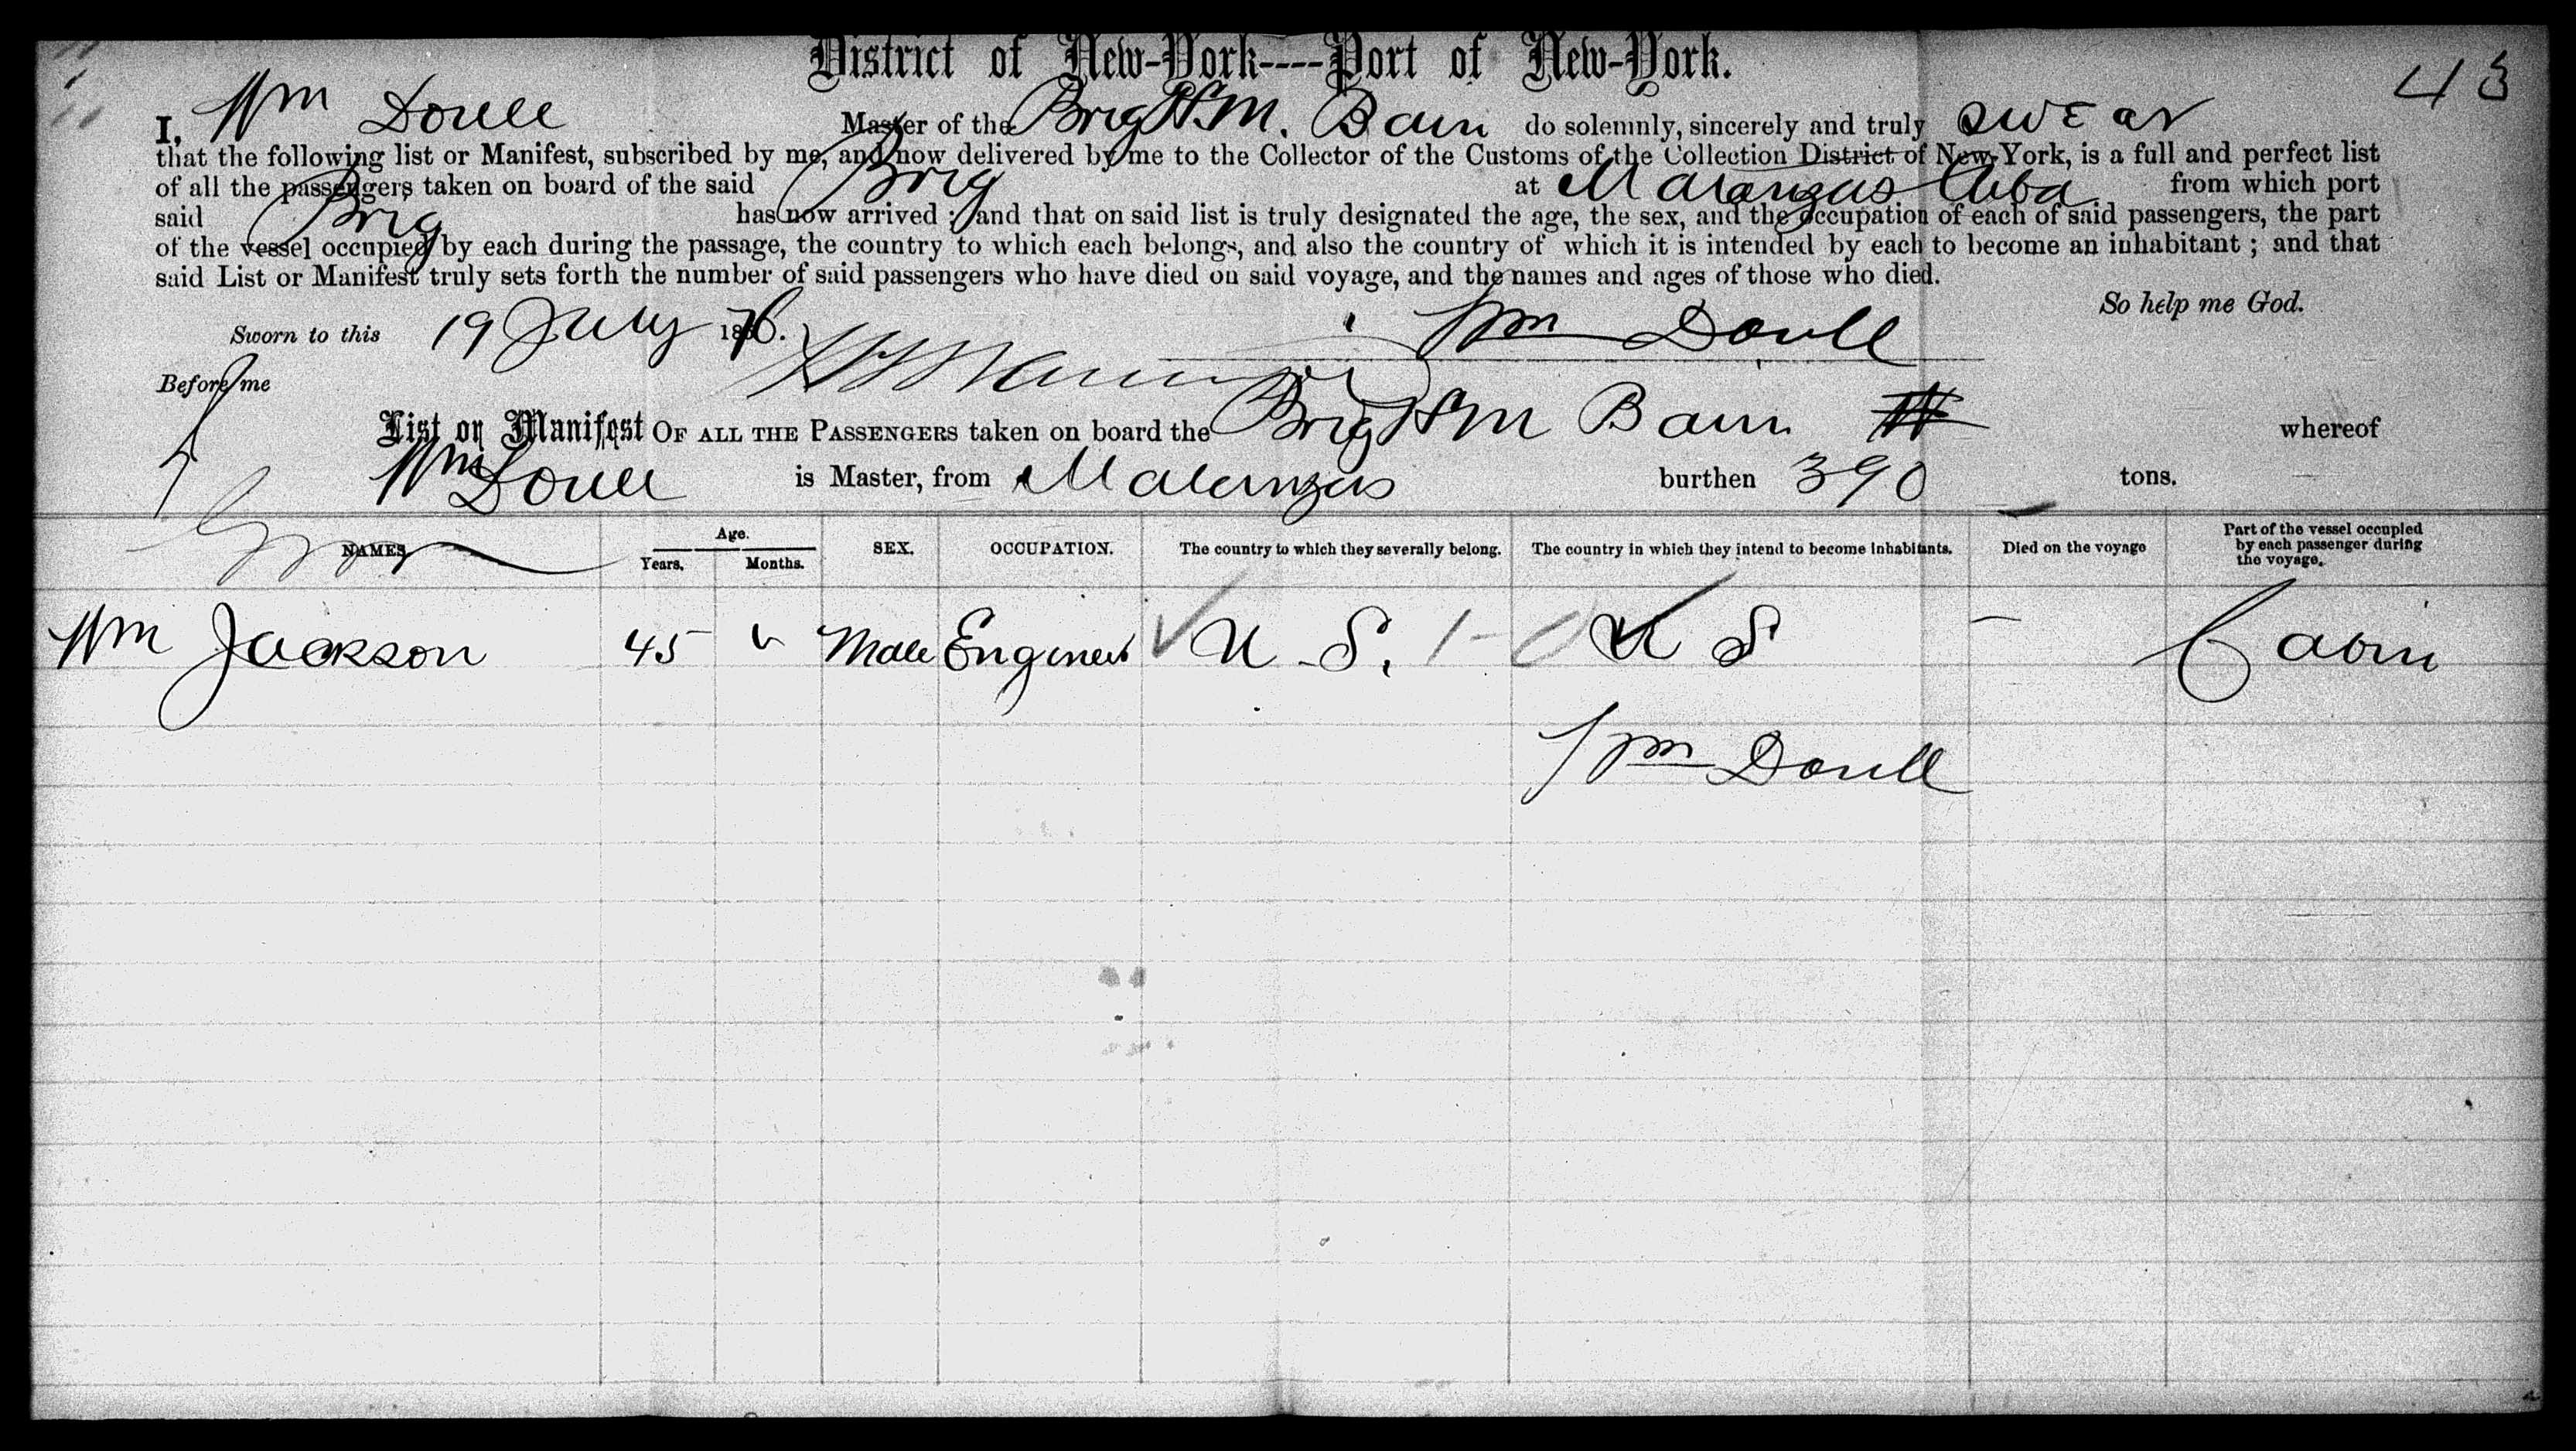 District of New-York----Port of New-York.
43
I, Wm Doull Master of the Brig H.M. Bain do solemnly, sincerely and truly swear
that the following list or Manifest, subscribed by me, and now delivered by me to the Collector of the Customs of the Collection District of New-York, is a full and perfect list
of all the passengers taken on board of the said Brig at Matanzas Cuba from which port
said Brig has now arrived ; and that on said list is truly designated the age, the sex, and the occupation of each of said passengers, the part
of the vessel occupied by each during the passage, the country to which each belongs, and also the country of which it is intended by each to become an inhabitant ; and that
said List or Manifest truly sets forth the number of said passengers who have died on said voyage, and the names and ages of those who died.
So help me God.
Sworn to this 19 July 1876. Wm Doull
Before me
List or Manifest OF ALL THE PASSENGERS taken on board the Brig H M Bain whereof
Wm Doull is Master, from Matanzas burthen 390 tons.
NAMES. Age. Years. Months. SEX. OCCUPATION. The country to which they severally belong. The country in which they intend to become inhabitants. Died on the voyage Part of the vessel occupied by each passenger during the voyage.
Wm Jackson 45 Male Engineer U.S. U S Cabin
Wm Doull